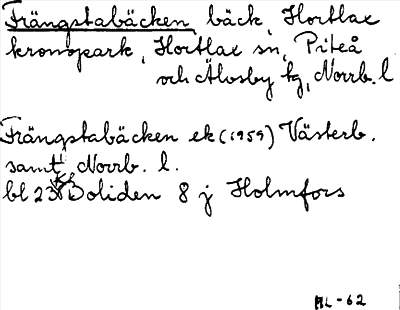 Frängstabäcken, bäck, Hortlax
kronopark, Hortlax sn, Piteå
och Älvsby tg, Norrb. l
Frängstabäcken ek (1959) Västerb.
samt Norrb. l.
bl 23 Boliden 8 j Holmfors
ML-62